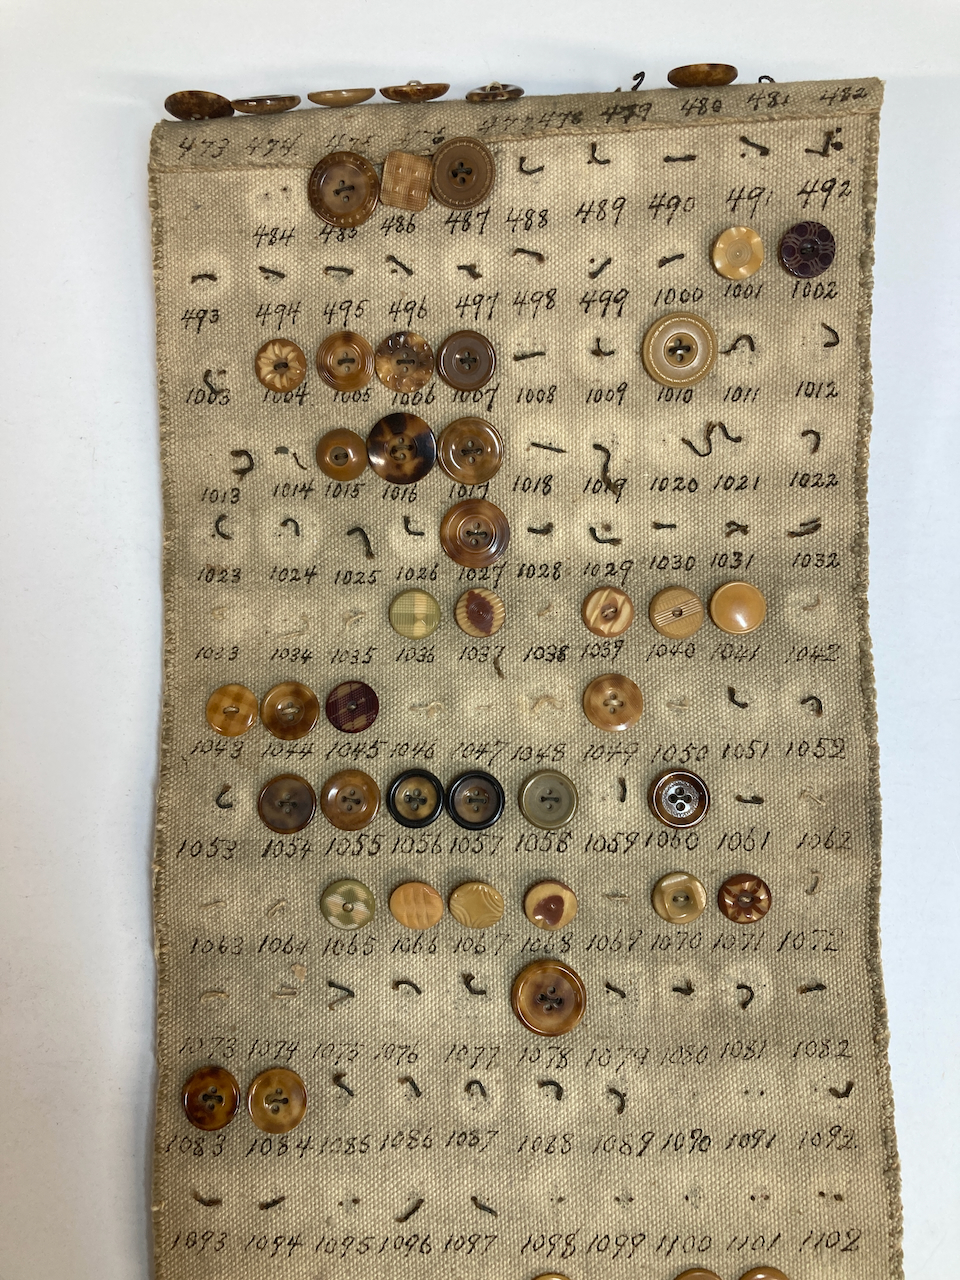 473 474 475 476 477 478 479 480 481 482
484 485 486 487 488 489 490 491 492
493 494 495 496 497 498 499 1000 1001 1002
1003 1004 1005 1006 1007 1008 1009 1010 1011 1012
1013 1014 1015 1016 1017 1018 1019 1020 1021 1022
1023 1024 1025 1026 1027 1028 1029 1030 1031 1032
1033 1034 1035 1036 1037 1038 1039 1040 1041 1042
1043 1044 1045 1046 1047 1048 1049 1050 1051 1052
1053 1054 1055 1056 1057 1058 1059 1060 1061 1062
1063 1064 1065 1066 1067 1068 1069 1070 1071 1072
1073 1074 1075 1076 1077 1078 1079 1080 1081 1082
1083 1084 1085 1086 1087 1088 1089 1090 1091 1092
1093 1094 1095 1096 1097 1098 1099 1100 1101 1102